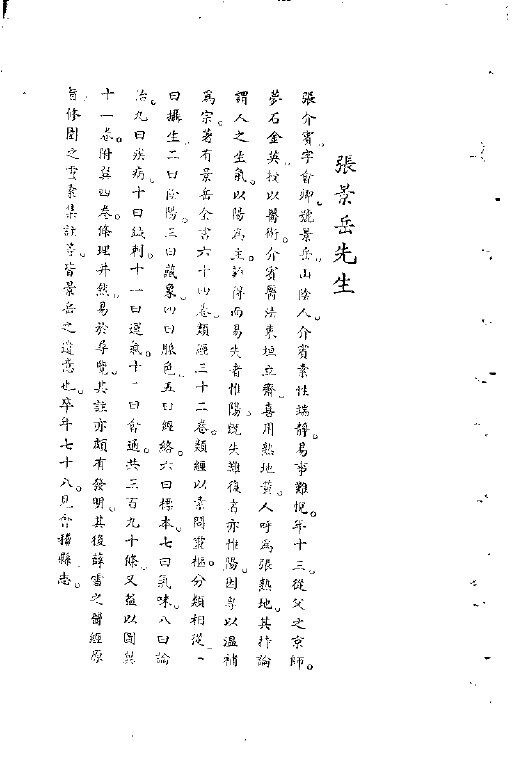 張景岳先生
張介賓。字會卿。號景岳。山陰人。介賓素性端靜。易事難悅。年十三。從父之京師。
夢石金英授以醫術。介賓醫法東垣立齋。喜用熟地黃。人呼為張熟地。其持論
謂人之生氣。以陽為主。難得而易失者惟陽。既失難復者亦惟陽。因專以溫補
為宗。著有景岳全書六十四卷。類經三十二卷。類經以素問靈樞。分類相從。一
曰攝生。二曰陰陽。三曰藏象。四曰脈色。五曰經絡。六曰標本。七曰氣味。八曰論
治。九曰疾病。十曰鍼刺。十一曰運氣。十一曰會通。共三百九十條。又益以圖翼
十一卷。附翼四卷。條理井然。易於尋覽。其註亦頗有發明。其後薛雪之醫經原
旨。修園之靈素集註等。皆景岳之遺意也。卒年七十八。見會稽縣志。